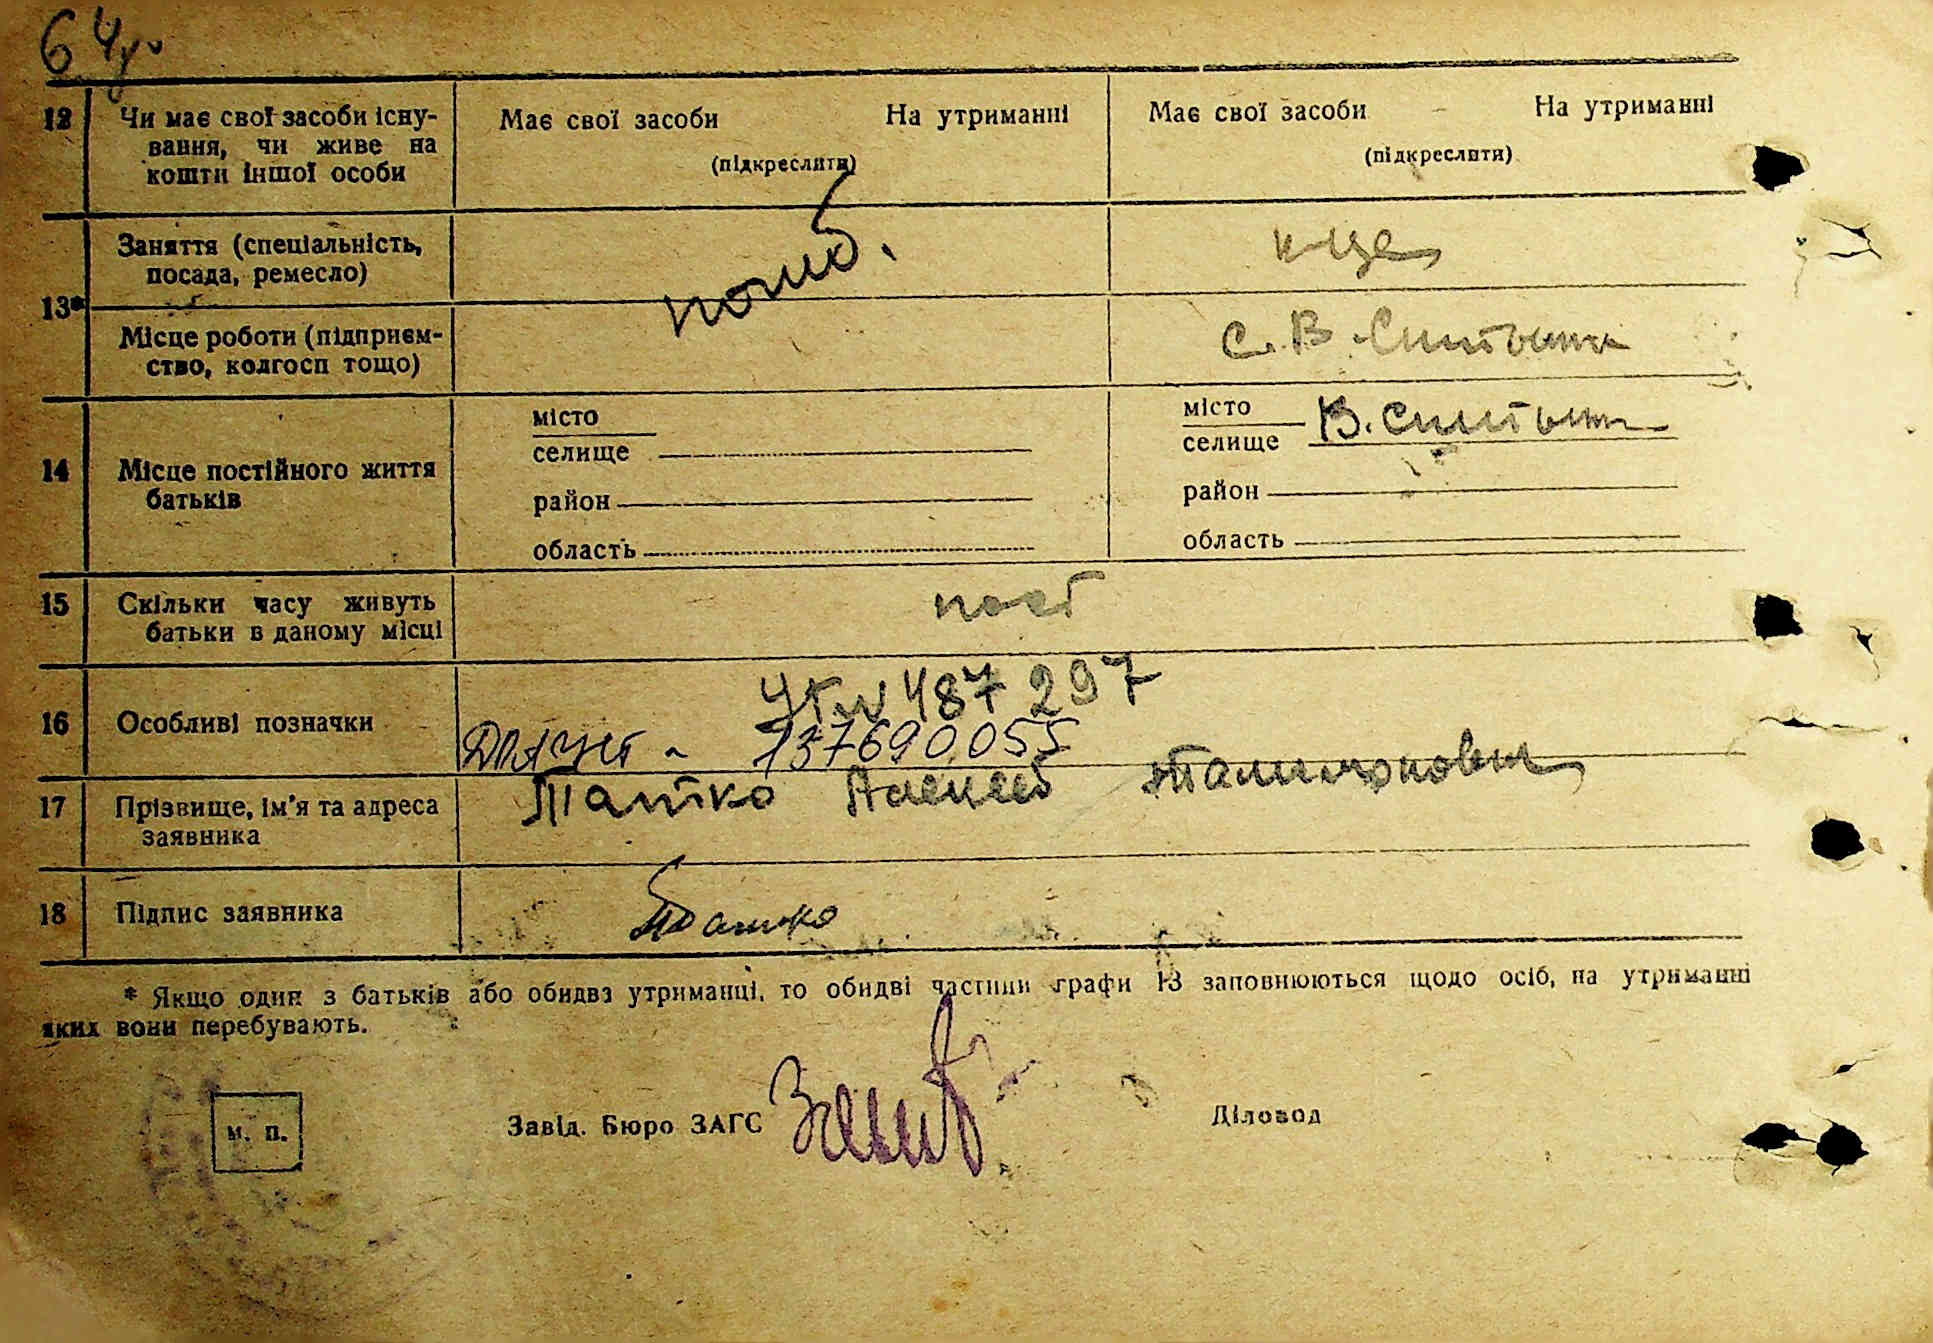 64
12 Чи має свої засоби існу-
вання, чи живе на
кошти іншої особи
Має свої засоби На утриманні
(підкреслити)
Має свої засоби На утриманні
(підкреслити)
13*
Заняття (спеціальність,
посада, ремесло)
погиб.
Місце роботи (підприєм-
ство, колгосп тощо)
с. В.
14 Місце постійного життя
батьків
місто
селище
район
область
місто
селище В.
район
область
15 Скільки часу живуть
батьки в даному місці
пост
16 Особливі позначки
487 297
137690055
17 Прізвище, ім'я та адреса
заявника
Алексей
18 Підпис заявника
* Якщо один з батьків або обидва утриманці, то обидві частини графи 13 заповнюються щодо осіб, на утриманні
яких вони перебувають.
м. п.
Завід. Бюро ЗАГС
Діловод